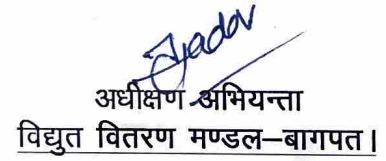 अधीक्षण अभियन्ता
विद्युत वितरण मण्डल–बागपत।